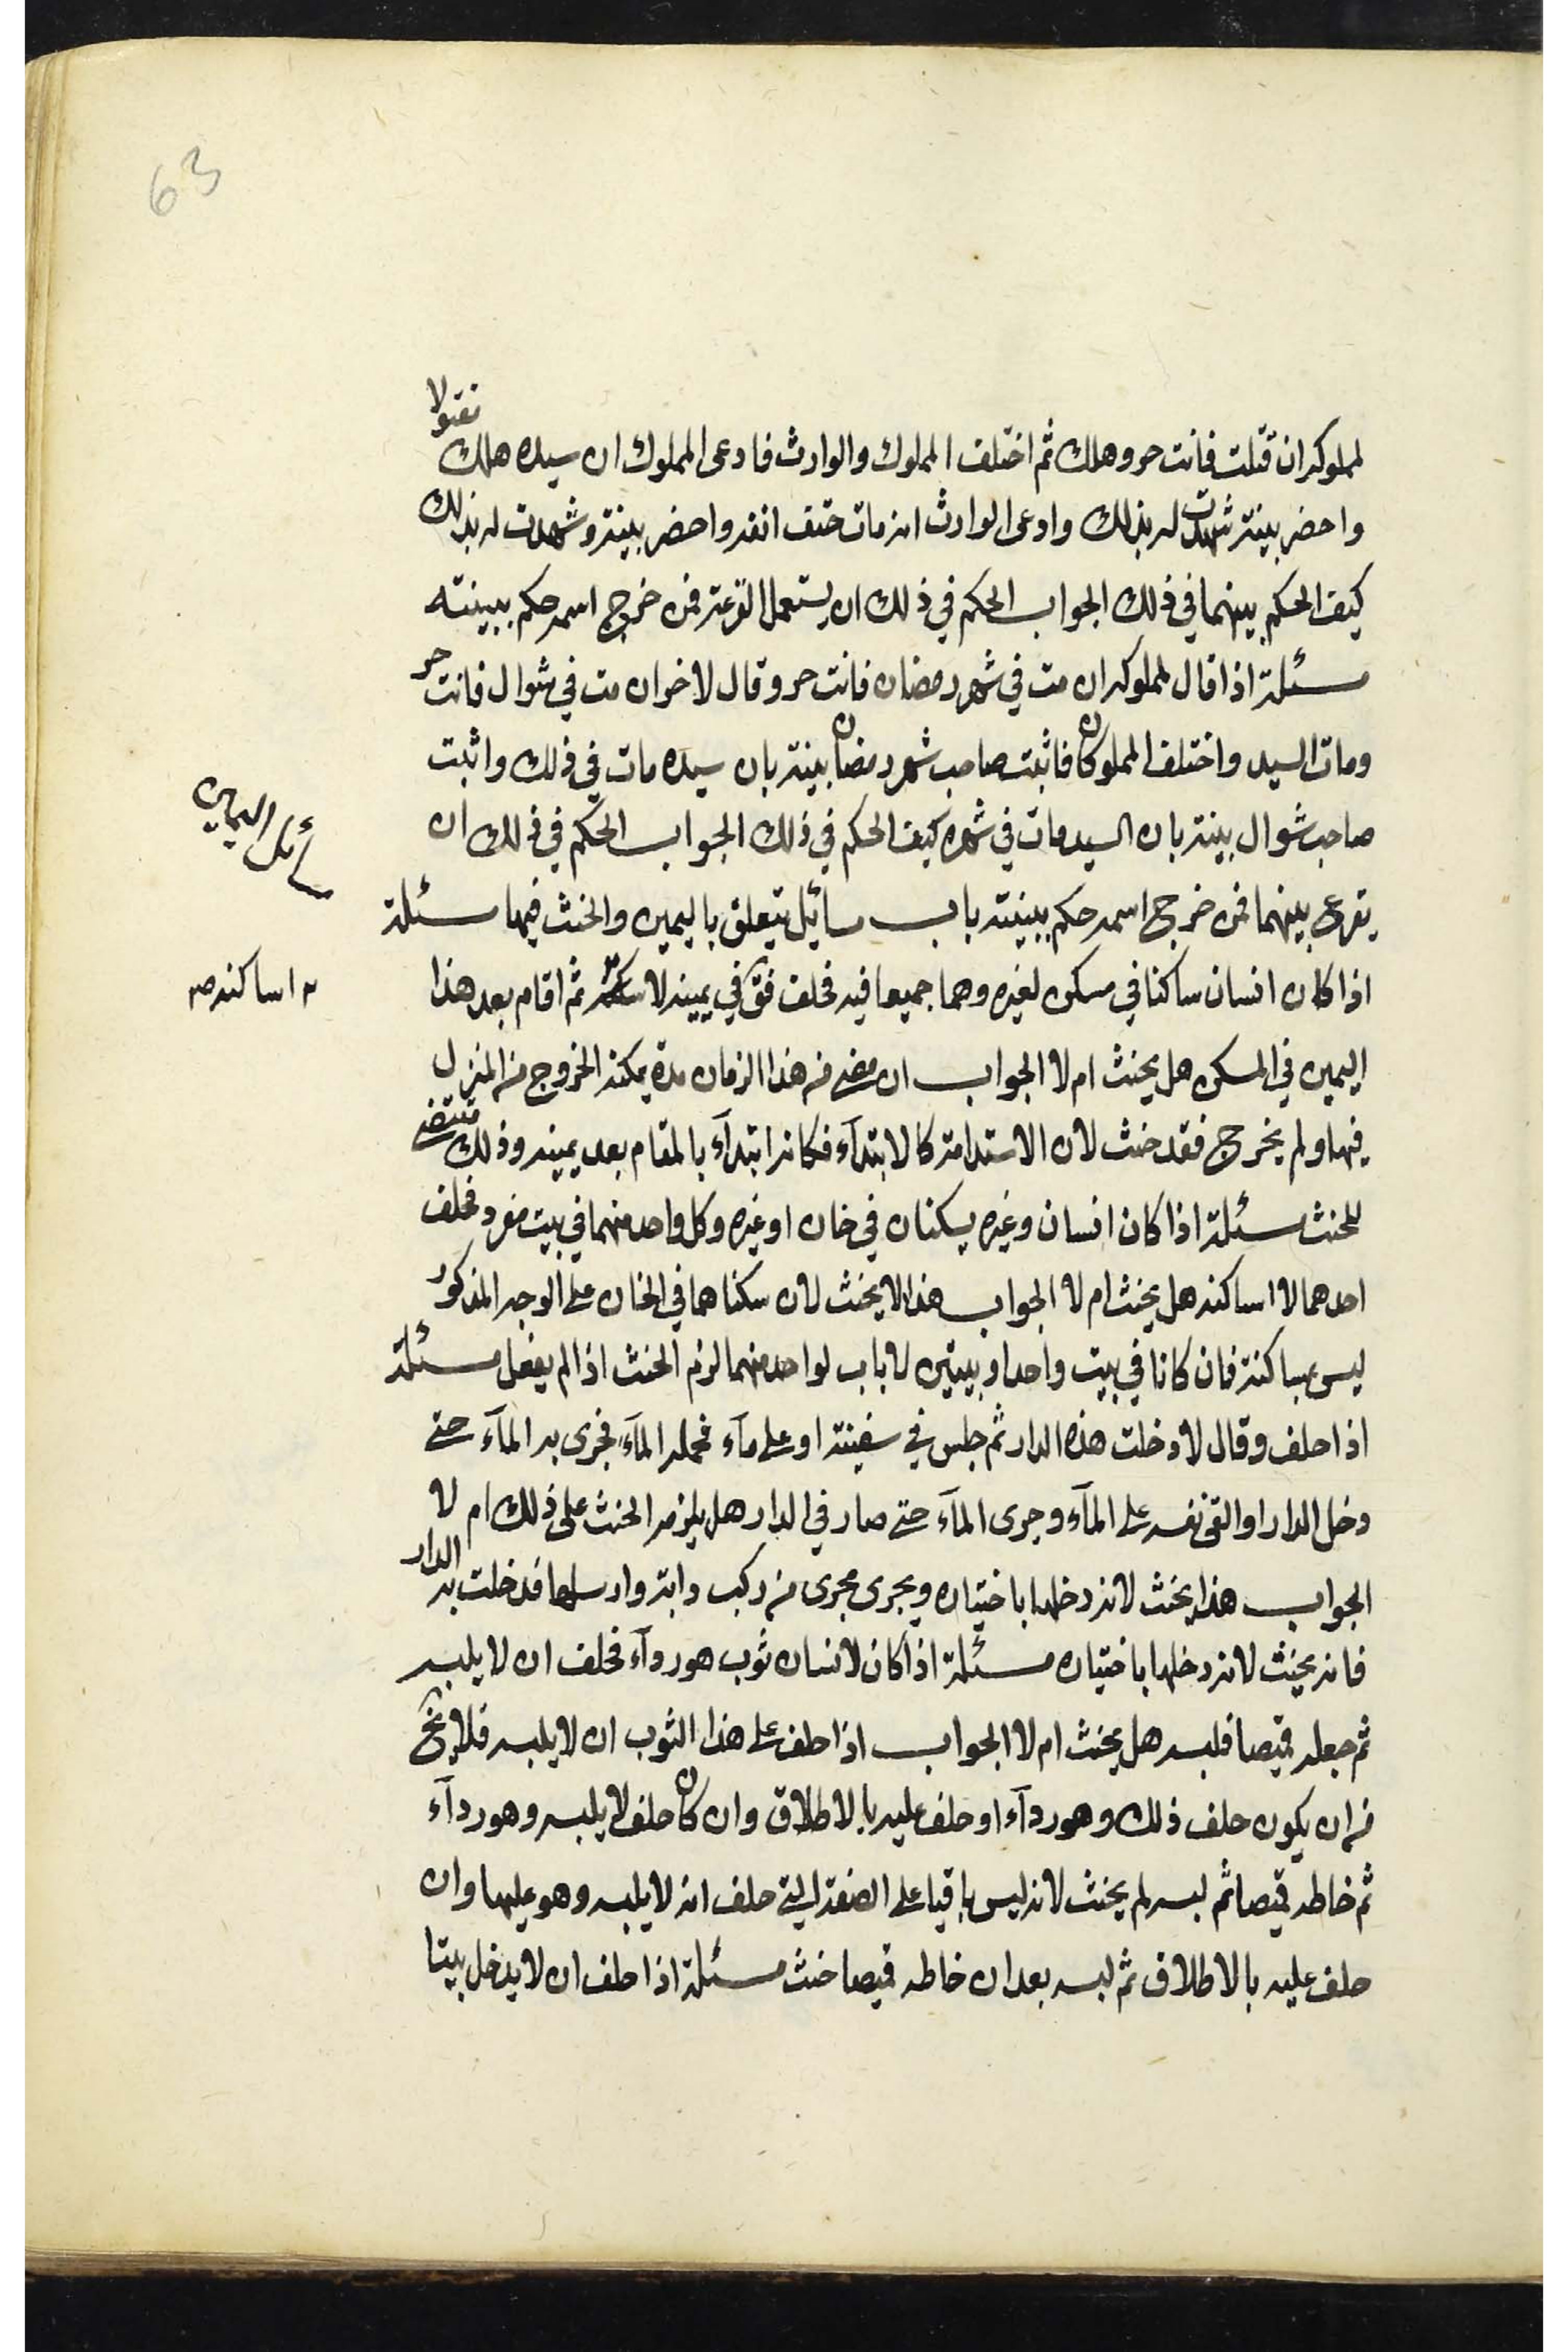 63
لمملوكه ان قتلت فانت حر وهلك ثم اختلف المملوك والوارث فادعى المملوك ان سيده هلك مقتولا
واحضر بينة شهدت له بذلك وادعى الوارث انه مات حتف انفه واحضر بينة وشهدت له بذلك
كيف الحكم بينهما في ذلك الجواب الحكم في ذلك ان يستعمل القرعة فمن خرج اسمه حكم ببينته
مسئلة اذا قال لمملوكه ان مت في شهر رمضان فانت حر وقال لاخر ان مت في شوال فانت حر
ومات السيد واختلف المملوكان فاثبت صاحب شهر رمضان بينة بان سيده مات في ذلك واثبت
صاحب شوال بينة بان السيد مات في شهره كيف الحكم في ذلك الجواب الحكم في ذلك ان
يقرع بينهما فمن خرج اسمه حكم ببينته باب مسائل تتعلق باليمين والحنث فيها مسئلة
مسائل اليمين
اذا كان انسان ساكنا في مسكن لغيره وهما جميعا فيه فحلف فق في يمينه لا ثم اقام بعد هذا
لا اساكنه صه
اليمين في المسكن هل يحنث ام لا الجواب ان مضى من هذا الزمان مدة يمكنه الخروج من المنزل
فيها ولم يخرج فقد حنث لان الاستدامة كالابتدآء فكانه ابتدآء بالمقام بعد يمينه وذلك مقتضى
للحنث مسئلة اذا كان انسان وغيره يسكنان في خان او غيره وكل واحد منهما في بيت مفرد فحلف
احدهما لا اساكنه هل يحنث ام لا الجواب هذا لا يحنث لان سكناهما في الخان على الوجه المذكور
ليس بمساكنة فان كانا في بيت واحد او بيتين لا باب لواحد منهما لزم الحنث اذا لم يفعل مسئلة
اذا حلف وقال لا دخلت هذه الدار ثم جلس في سفينة او على مآء فحمله المآء فجرى به المآء حتى
دخل الدار او القى نفسه على المآء وجرى المآء حتى صار في الدار هل يلزمه الحنث على ذلك ام لا
الجواب هذا يحنث لانه دخلها باختياره ويجرى مجرى من ركب دابة وارسلها فدخلت به الدار
فانه يحنث لانه دخلها باختياره مسئلة اذا كان لانسان ثوب هو ردآء فحلف ان لا يلبسه
ثم جعله قميصا فلبسه هل يحنث ام لا الجواب اذا حلف على هذا الثوب ان لا يلبسه فلا يخ
من ان يكون حلف ذلك وهو ردآء او حلف عليه بالاطلاق وان كان حلف لا يلبسه وهو ردآء
ثم خاطه قميصا ثم لبسه لم يحنث لانه ليس باقيا على الصفة التي حلف انه لا يلبسه وهو عليها وان
حلف عليه بالاطلاق ثم لبسه بعد ان خاطه قميصا حنث مسئلة اذا حلف ان لا يدخل بيتا